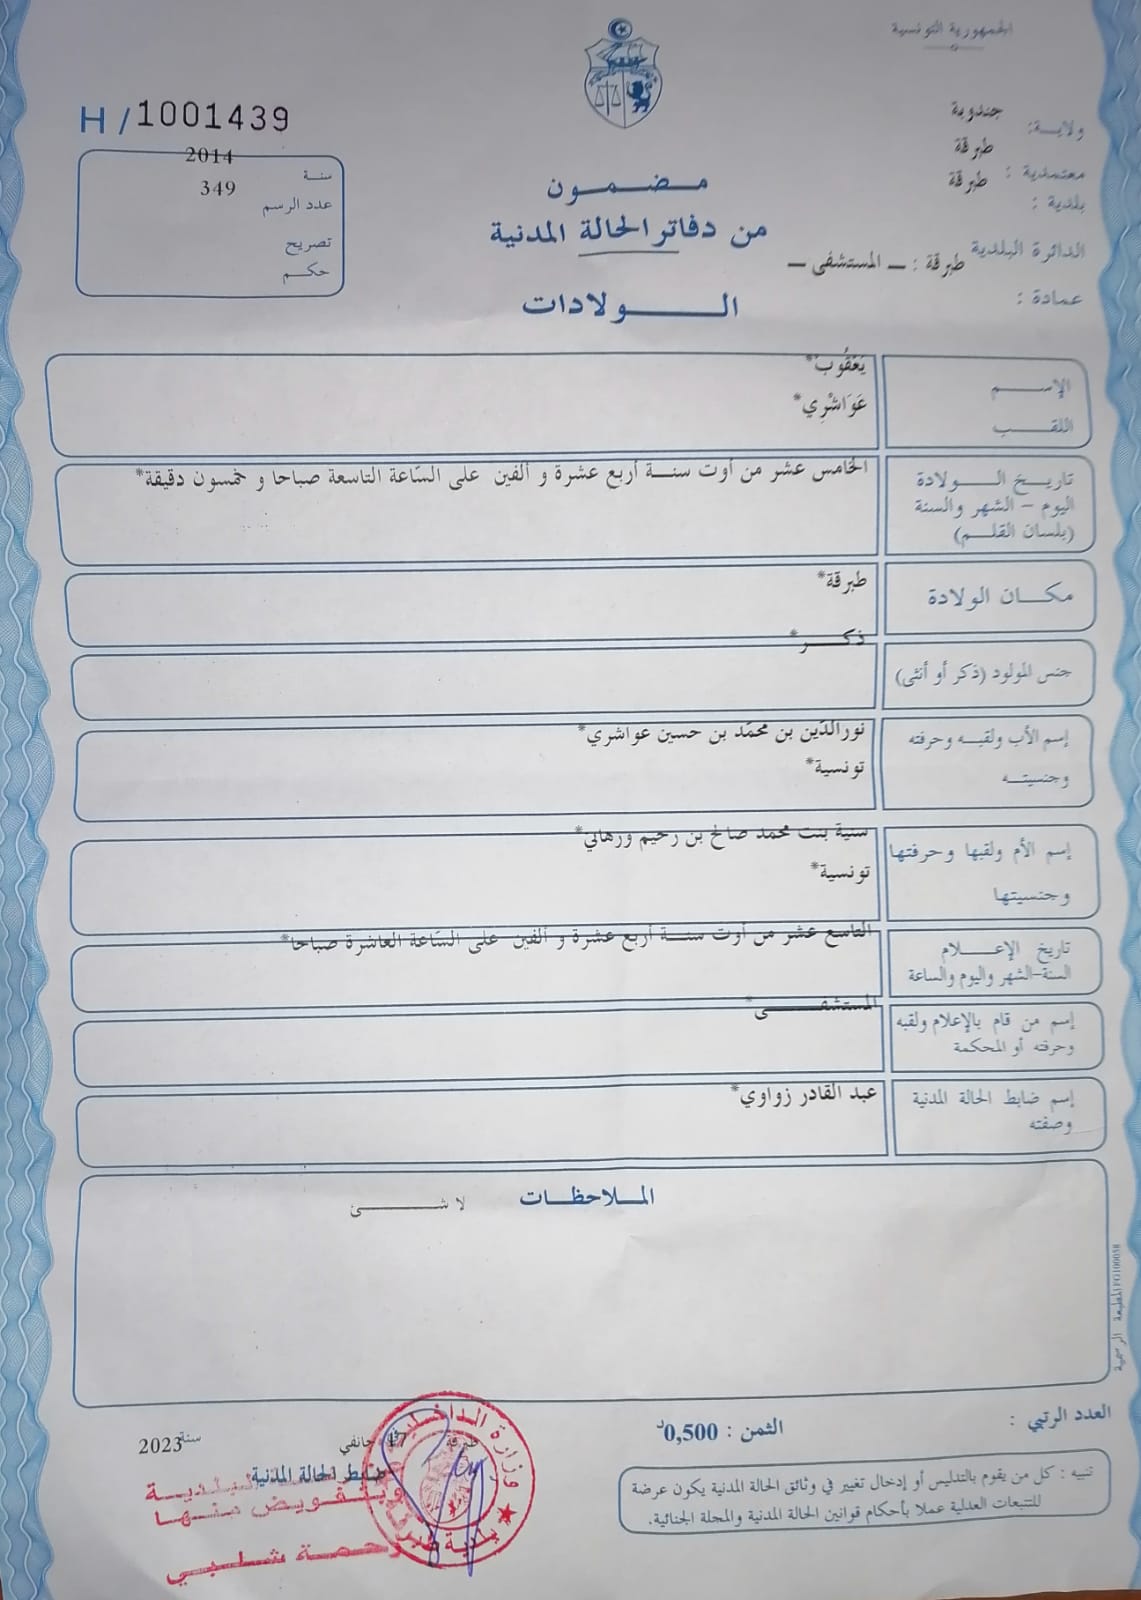 الجمهورية التونسية
H / 1001439
ولاية : جندوبة
معتمدية : طبرقة
بلدية : طبرقة
الدائرة البلدية طبرقة : ــ المستشفى ــ
عمادة :
سنة 2014
عدد الرسم 349
تصريح
حكم
مضمون
من دفاتر الحالة المدنية
الولادات
الإسم يَعْقُوبْ*
اللقب عَوَاشْرِي*
تاريخ الولادة الخامس عشر من أوت سنة أربع عشرة و ألفين على السّاعة التاسعة صباحا و خمسون دقيقة*
اليوم – الشهر والسنة
(بلسان القلم)
مكان الولادة طبرقة*
جنس المولود (ذكر أو أنثى) ذكر*
إسم الأب ولقبه وحرفته نورالدّين بن محمّد بن حسين عواشري*
وجنسيته تونسية*
إسم الأم ولقبها وحرفتها سنية بنت محمد صالح بن رحيم ورهاني*
وجنسيتها تونسية*
تاريخ الإعلام التاسع عشر من أوت سنة أربع عشرة و ألفين على السّاعة العاشرة صباحا*
السنة–الشهر واليوم والساعة
إسم من قام بالإعلام ولقبه المستشفى*
وحرفته أو المحكمة
إسم ضابط الحالة المدنية عبد القادر زواوي*
وصفته
الملاحظات لا شئ
المطبعة الرسمية
العدد الرتبي :
الثمن : 0,500د
طبرقة في 17 جانفي سنة 2023
ضابط الحالة المدنية
البلدية
وبتفويض منها
رحمة شلبي
وزارة الداخلية
بلدية طبرقة
تنبيه : كل من يقوم بالتدليس أو إدخال تغيير في وثائق الحالة المدنية يكون عرضة
للتتبعات العدلية عملا بأحكام قوانين الحالة المدنية والمجلة الجنائية.